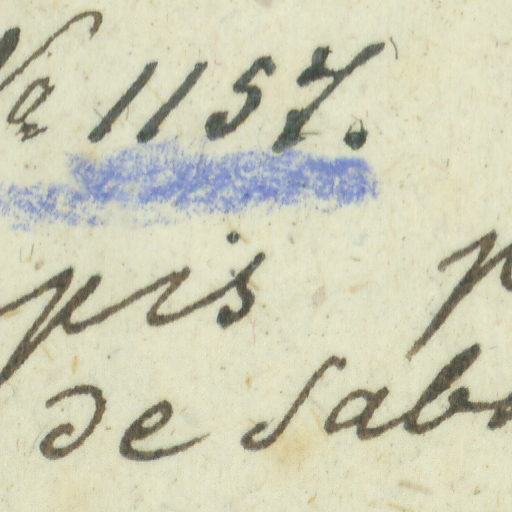 Na 1157.
pis p
de Sabo